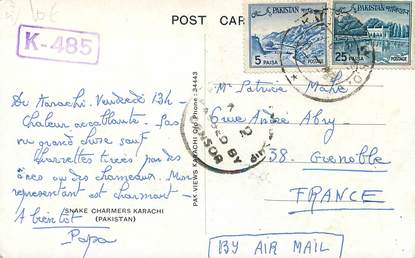 POST CARD
K-485
PAKISTAN
5 PAISA POSTAGE
PAKISTAN
25 PAISA POSTAGE
De Karachi. Vendredi 13h
Chaleur accablante. Pas
vu grand chose sauf
charrettes tirées par des
ânes ou des chameaux. Mon
représentant est charmant
A bientôt
Papa
SNAKE CHARMERS KARACHI
(PAKISTAN)
PAK VIEWS KARACHI Phone: 34443
ED BY
SOR
Patrice Mahé
6 rue André Abry
38. Grenoble
FRANCE
BY AIR MAIL